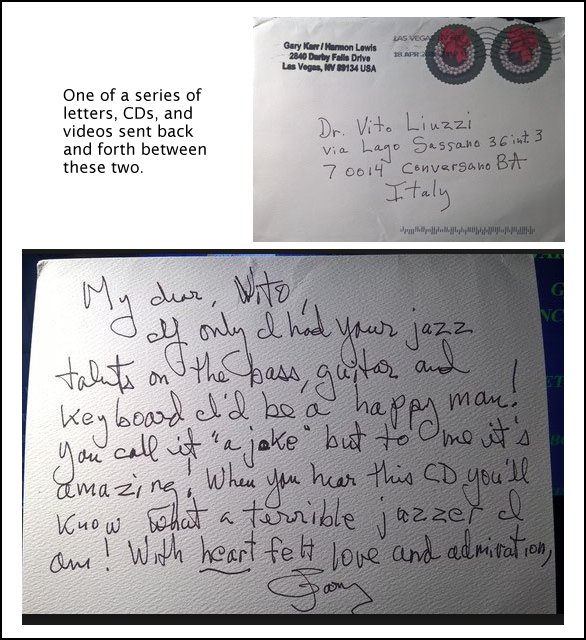 One of a series of
letters, CDs, and
videos sent back
and forth between
these two.
Gary Karr / Harmon Lewis
2840 Darby Falls Drive
Las Vegas, NV 89134 USA
LAS VEGAS
18 APR
Dr. Vito Liuzzi
via Lago Sassano 36 int. 3
70014 Conversano BA
Italy
My dear, Vito,
If only I had your jazz
talents on the bass, guitar and
keyboard I'd be a happy man!
You call it "a joke" but to me it's
amazing! When you hear this CD you'll
know what a terrible jazzer I
am! With heart felt love and admiration,
Gary